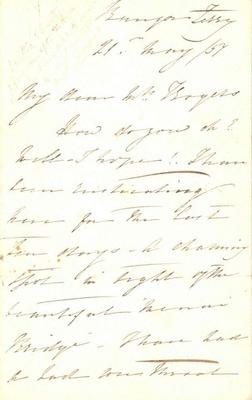 Bangor Ferry
21st May /57
My dear Mr. Rogers
How do you do?
Well - I hope! I have
been rusticating
here for the last
Ten days - A charming
Spot in sight of the
beautiful Menai
Bridge - I have had
a bad sore throat